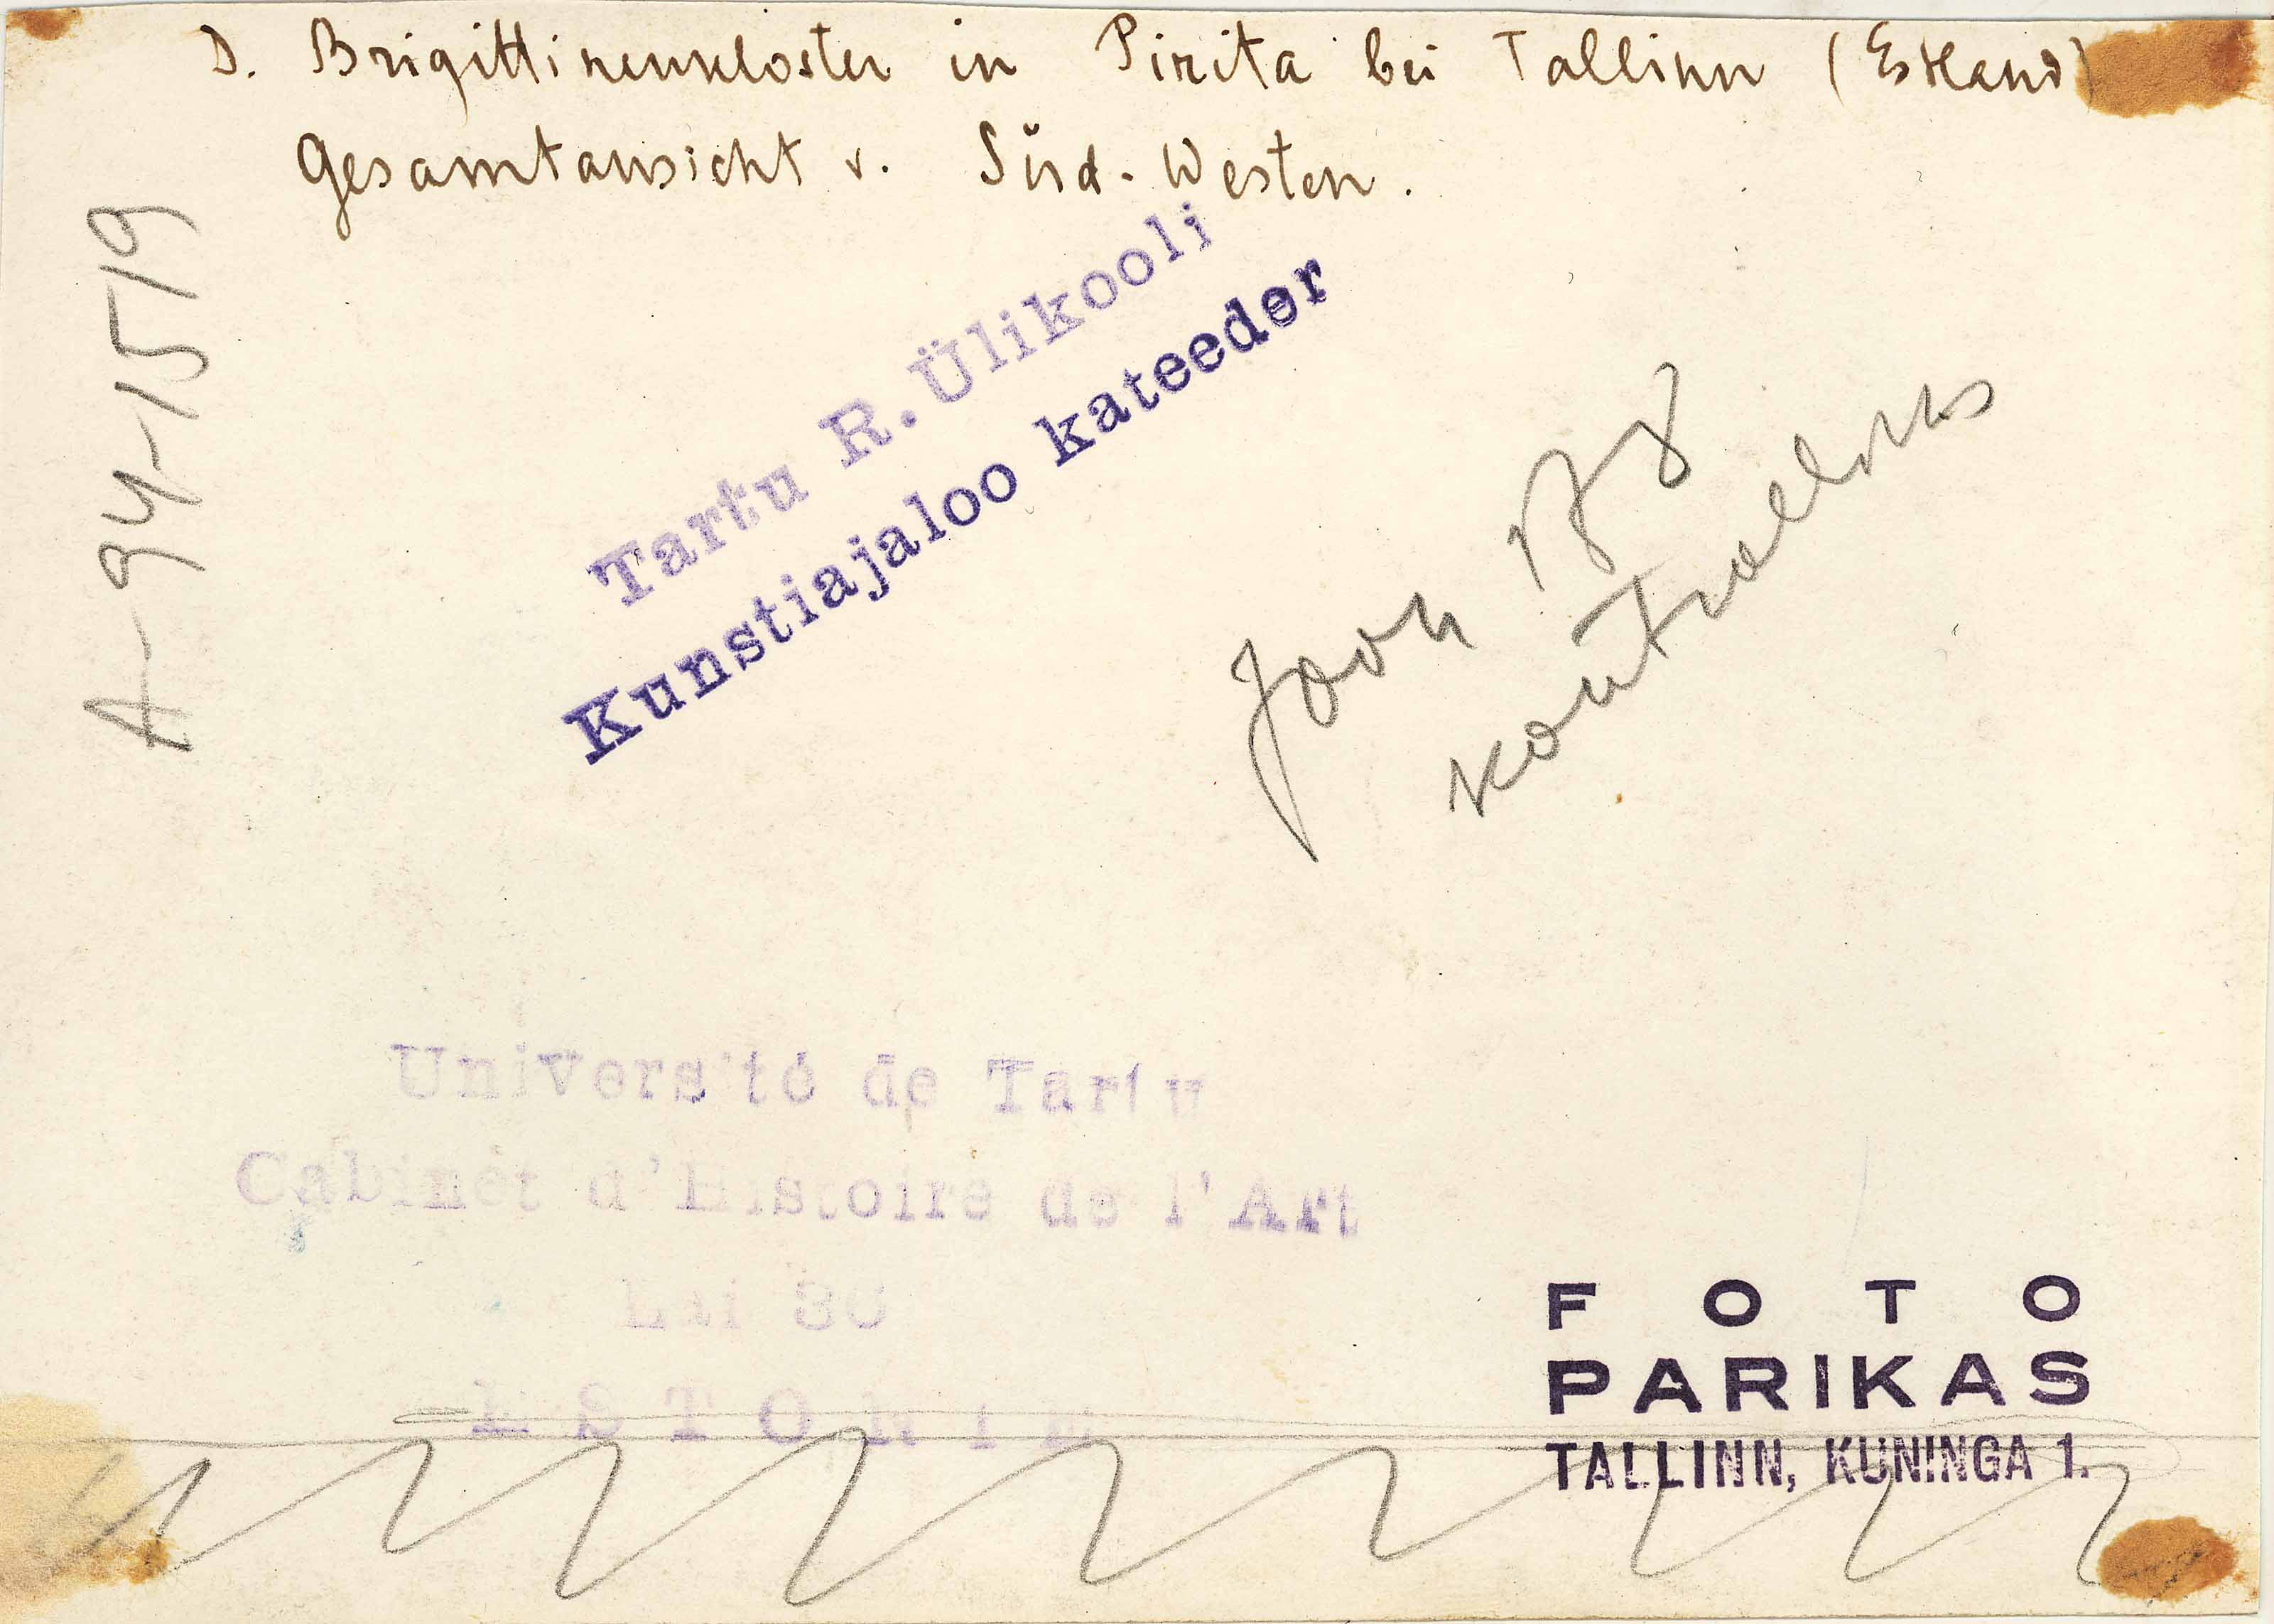 D. Brigittinenkloster in Pirita bei Tallinn (Estland)
Gesamtansicht v. Süd-Westen.
A-94-15/9
Tartu R. Ülikooli
Kunstiajaloo kateeder
Joon
Université de Tartu
Cabinet d'Histoire de l'Art
Lai
ESTONIE
FOTO
PARIKAS
TALLINN, KUNINGA 1.